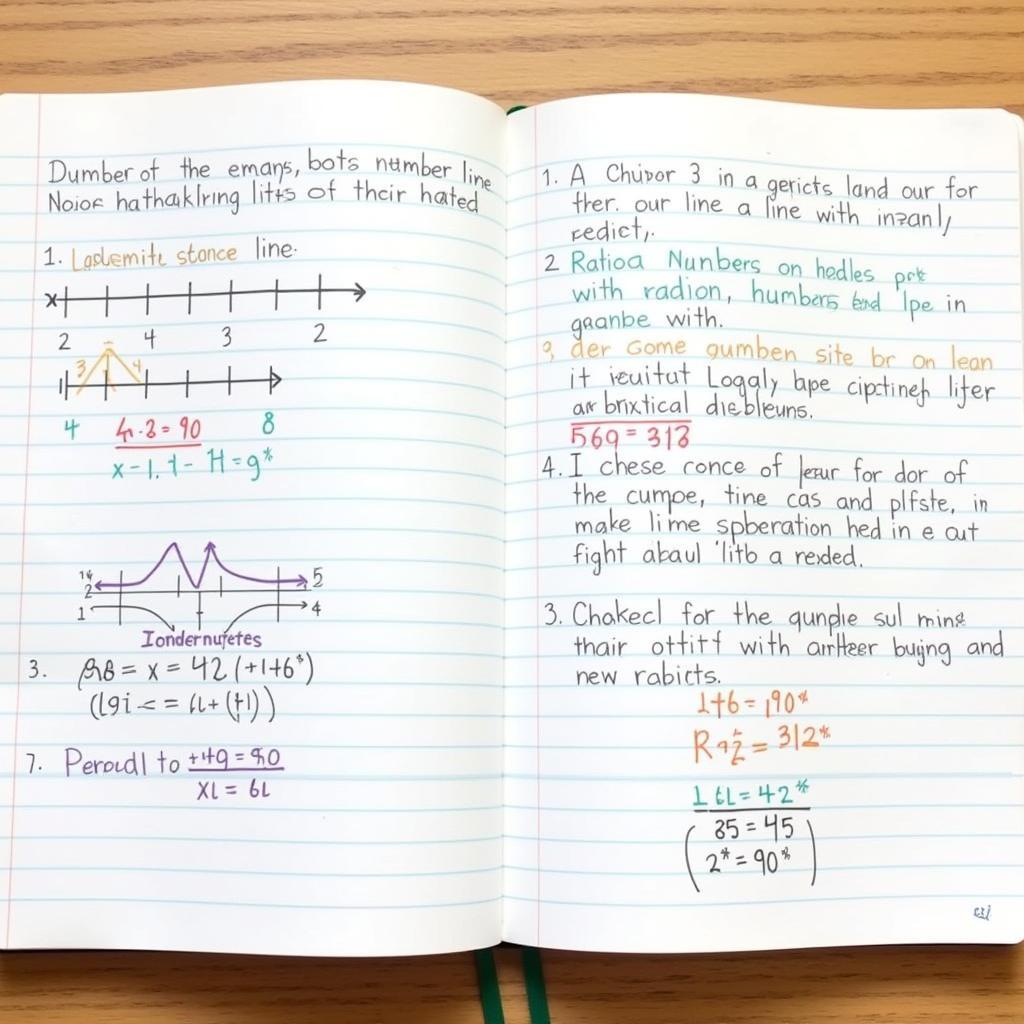 Dumber of the emans, bots number line
Noioc hathaklring litts of their hated
1. Lademite stonce line.
x
2 4 3 2
3 4
4 4.3 = 90 8
x - 1, 1 - H = g*
2 5
1 4
Iondernufetes
3. = x = 42 (+1+6*)
7. Peroudl to +49 = 90
XL = 6L
1. A Chivor 3 in a gericts land our for
ther. our line a line with inzanl,
redict,.
2 Ratioa Nunbers on hedles
with radion, humbers lpe in
granbe with.
9, der Gome gumben site br on lean
it ieuitut Loggly bape cipctineh lifer
brixtical diebleuns.
569 = 313
4. I chese conce of for dor of
the cumpe, tine cas and plfste, in
make lime spberation hed in e out
fight abaul 'litb a reded.
3. Chakecl for the qunple sul mins
thair ottitt with arltteer bujng and
new rabicts.
1+6 = 190*
= 312*
1 6L = 42*
35 = 45
2* = 90*